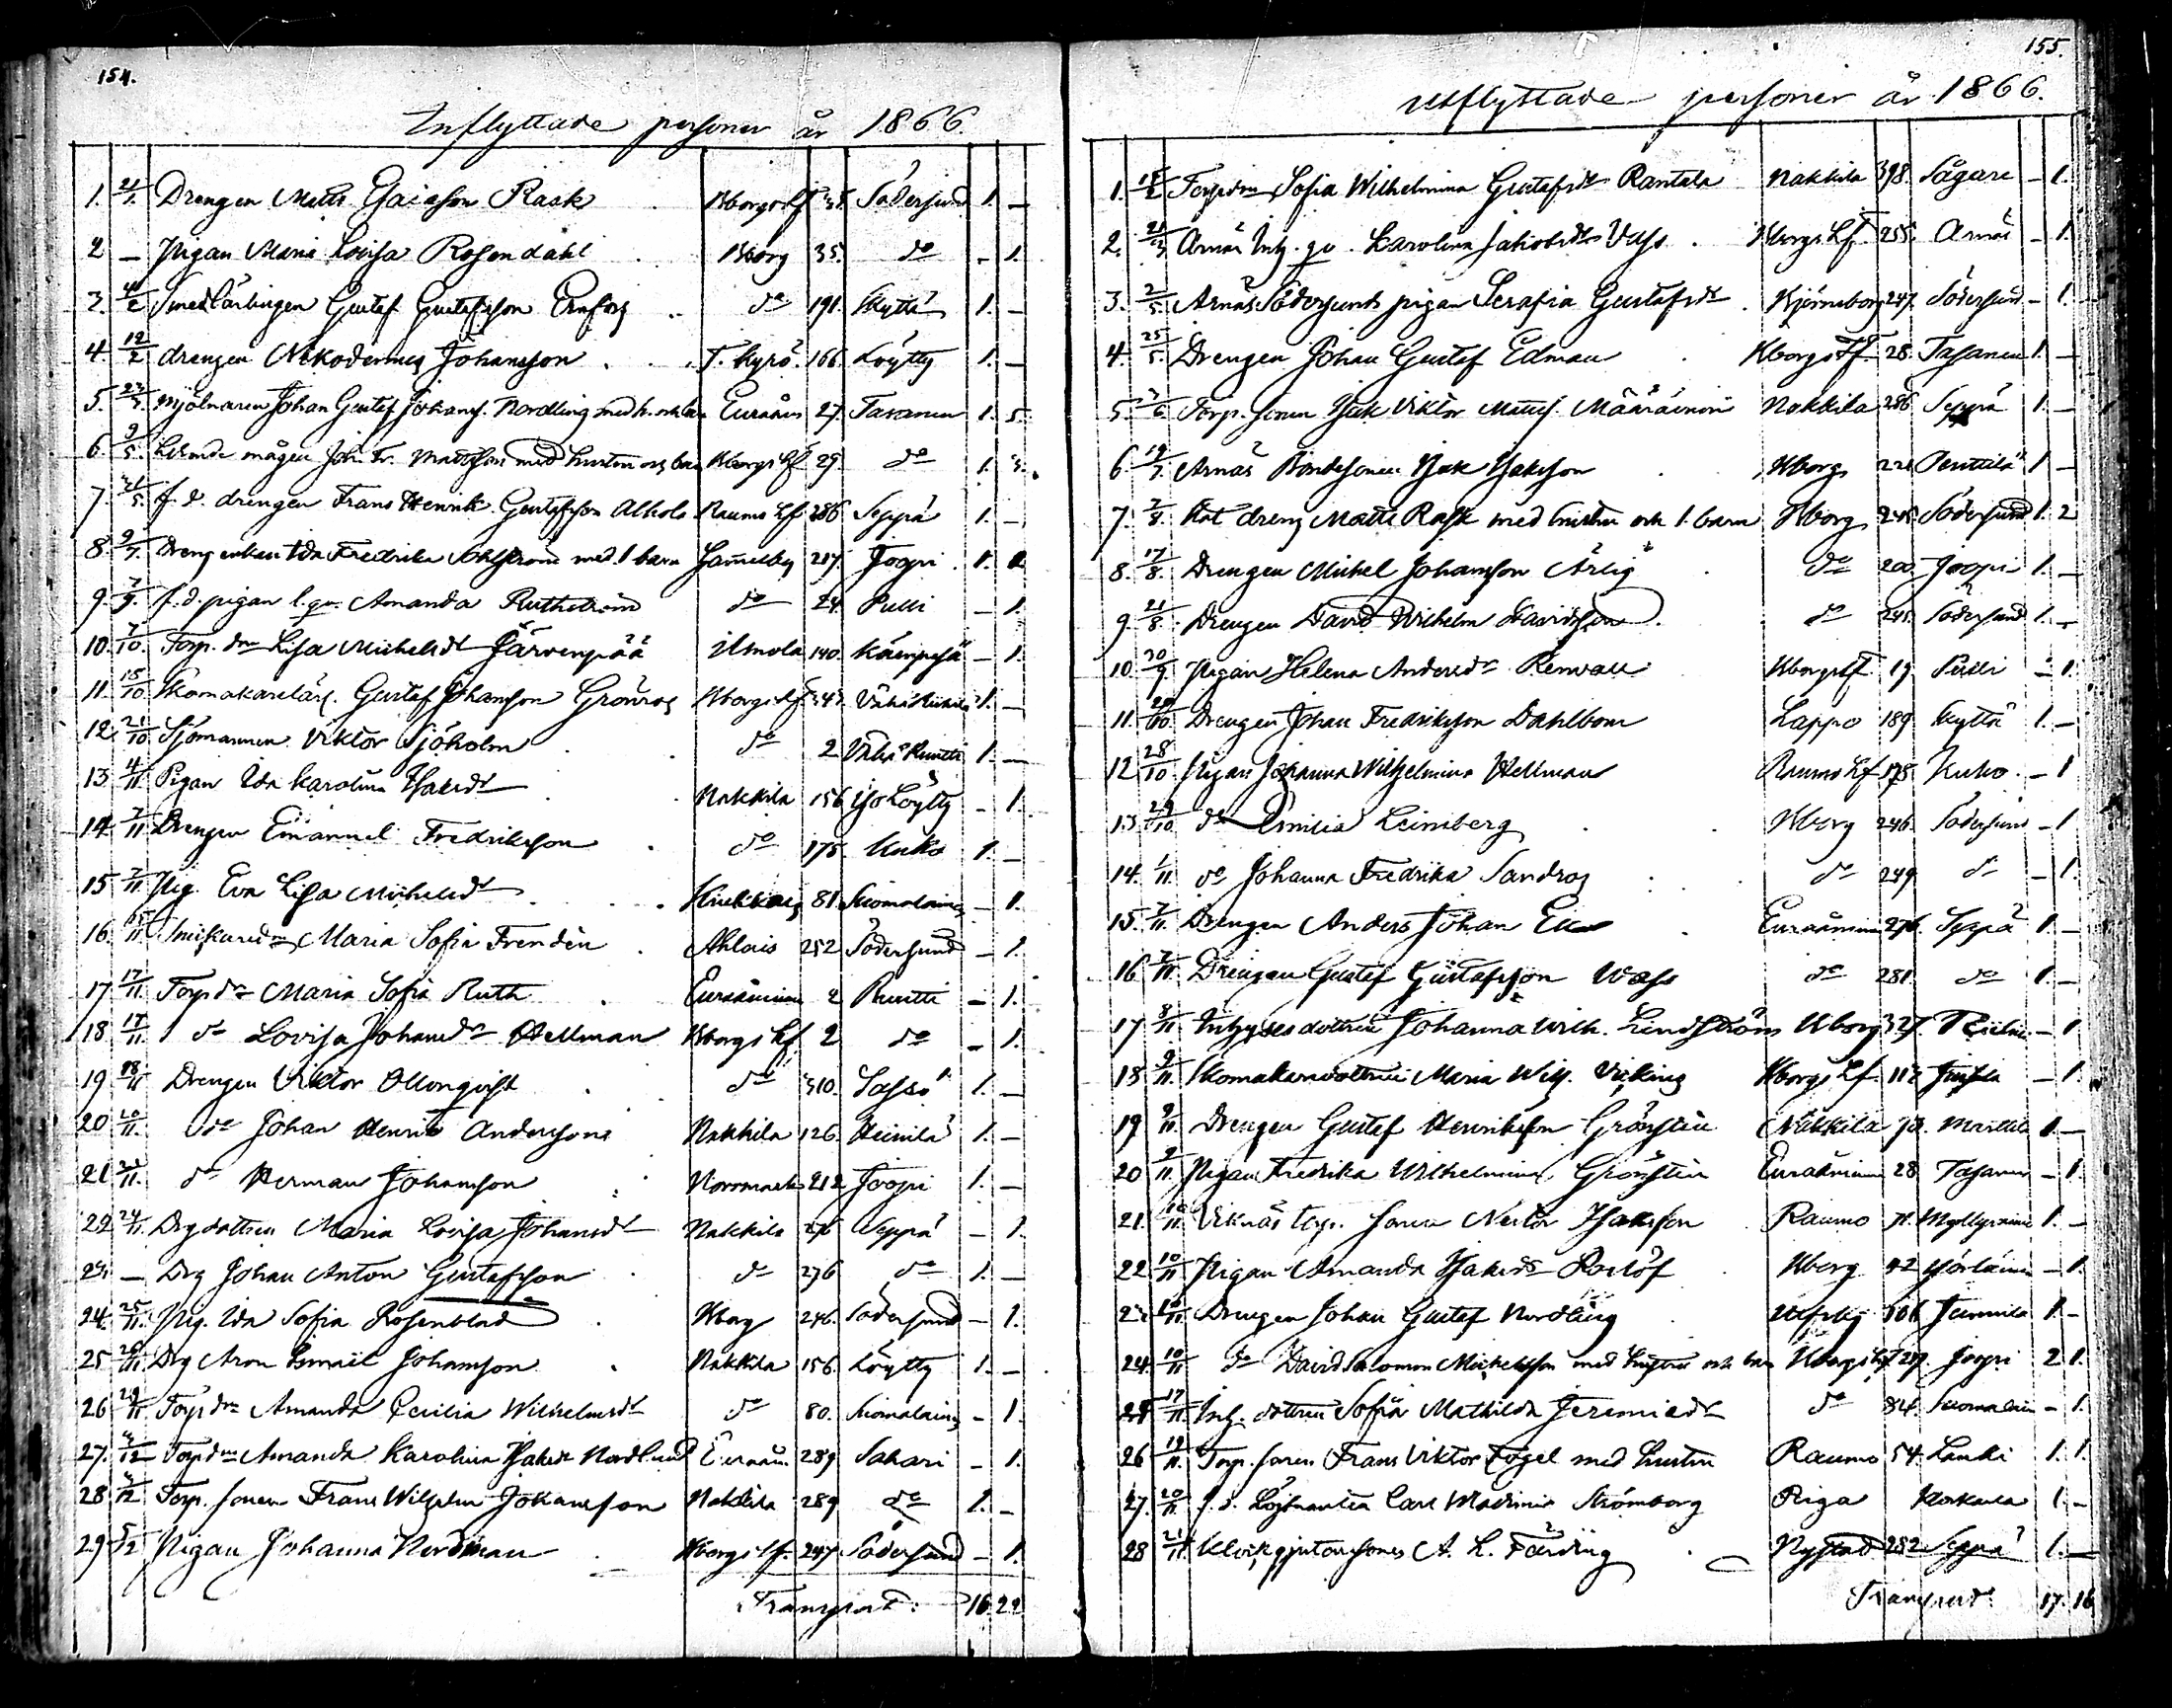 154.
Inflyttade personer år 1866.
1. 21/1. Drengen Matts Isaksson Rask Bborgs Lf 38. Södersund 1. —
2 — Pigan Maria Lovisa Rosendahl Bborg 35. do - 1.
3. 4/2 Smedlärlingen Gustaf Gustafsson Enfors do 191. Kyttä 1. —
4. 12/2 drengen Nikodemus Johansson T. Kyrö. 166. Löytty 1. —
5. 23/3. Mjölnaren Johan Gustaf Johanss. Nordling med h. och barn Euraåm 27. Tasanen 1. 5.
6. 9/5. mågen Joh. Fr. Mattsson med hustru och barn Bborgs Lf 29. do 1. 3.
7. 21/5. f. d. drengen Frans Henrik Gustafsson Raumo Lf 286 Seppä 1. —
8. 9/7. Drengenkan Ida Fredrika Sohlström med 1 barn 217. Joopi 1.
9. 7/9. f. d. pigan l. qv. Amanda Ruthström do 24. Pelli — 1.
10. 7/10. Torp. dr Lisa Michelsdt Järvenpää Ilmola 140. — 1.
11. 15/10 Skomakarelärl. Gustaf Johansson Grönros Bborgs Lf 343. 1. —
12. 21/10 Sjömannen Viktor Sjöholm do 2 Ruutti 1. —
13 4/11 Pigan Ida Karolina Isaksdt Nakkila 156 Löytty — 1.
14. 7/11 Drengen Emanuel Fredriksson do 175. Kuko 1. —
15 7/11 Pig. Eva Lisa Michelsdt 81. Suomalainen — 1.
16. 15/11 Maria Sofia Frendén Ahlais 252 Södersund — 1.
17 17/11. Torp dr Maria Sofia Ruth Euraåminne 2 Ruutti — 1.
18. 17/11 do Lovisa Johansdr Hellman Bborgs Lf. 2 do — 1.
19 18/11 Drengen Viktor Ollonqvist do 310. Sassi 1. —
20 20/11. do Johan Henrik Andersson Nakkila 126 Heinilä 1. —
21 /11. do Herman Johansson Norrmark 212 Joopi 1. —
22. 24/11. Drg dottren Maria Lovisa Johansdt Nakkila 276 Seppä — 1.
23. — Drg Johan Anton Gustafsson do 276 do 1. —
24. 25/11. Pig. Ida Sofia Rosenblad Bborg 246. Södersund — 1.
25 /11 Drg Aron Ismael Johansson Nakkila 156. Löytty 1. —
26 29/11. Torp dr Amanda Cecilia Wilhelmsdt do 80. Suomalainen — 1.
27. /12 Torp dr Amanda Karolina Isaksdr Nordlund Euraåm. 289 Sahari — 1.
28 /12 Torp. sonen Frans Wilhelm Johansson Nakkila 289 do 1. —
29 5/12 Pigan Johanna Nordman Bborgs Lf. 247 Södersund — 1.
Transport: 16. 22
155.
Utflyttade personer år 1866.
1. 18/2 Torp dr Sofia Wilhelmina Gustafsdt Rantala Nakkila 398. Sågare — 1.
2. 21/3 Arnäs Inh. qv. Karolina Jakobsdr Vass Bborgs Lf. 255. Arnäs — 1.
3. 2/5. Arnäs Södersunds pigan Serafia Gustafsdt Björneborg 247. Södersund — 1.
4. 25/5. Drengen Johan Gustaf Edman Bborgs Lf. 28. Tasanen 1. —
5. /6 Torp. sonen Isak Viktor Matts. Nakkila 286 Seppä 1. —
6 19/7 Arnäs Bondesonen Isak Isaksson Bborg Penttilä 1 —
7. 7/8. dreng Matts Rask med hustru och 1. barn Bborg 248. Södersund 1. 2
8. 17/8. Drengen Michel Johansson Ärlig do 200. Joopi 1. —
9. 21/8. Drengen David Wilhelm Davidsson do 245. Södersund 1. —
10 30/9 Pigan Helena Andersdr Renvall Bborgs Lf 19 Pelli — 1.
11. 20/10. Drengen Johan Fredriksson Dahlbom Lappo 189. Kyttä 1. —
12 28/10. Pigan Johanna Wilhelmina Hellman Raumo Lf 175. Kuko. — 1
13 29/10 do Emilia Leinberg Bborg 246. Södersund — 1
14. 1/11. do Johanna Fredrika Sandros do 249 do — 1.
15. 7/11. Drengen Anders Johan Ek Euraåminne 276. Seppä 1. —
16 7/11. Drengen Gustaf Gustafsson Wass do 281. do 1. —
17 8/11 Inhyses dottren Johanna Wilh. Lindström Bborg 327. — 1
18 9/11. Skomakaredottren Maria Wilh. Viking Bborgs Lf 112 — 1.
19 9/11. Drengen Gustaf Henriksson Grönsten Nakkila 70. Marttila 1. —
20 9/11. Pigan Fredrika Wilhelmina Grönsten Euraåminne 28. Tasanen — 1.
21. 10/11. torp. sonen Nestor Isaksson Raumo 71. 1. —
22 10/11 Pigan Amanda Isaksdr Roslöf Bborg 42 — 1.
23 10/11 Drengen Johan Gustaf Nordling Ulfsby 106 1. —
24. 10/11 do David Salomon Michelsson med hustru och barn Bborgs Lf 217. Joopi 2 1.
25 17/11. Inh. dottren Sofia Mathilda Jeremiedt do 84. Suomalainen — 1.
26 19/11. Torp. sonen Frans Viktor Fogel med hustru Raumo 54. Lauki 1. 1.
27. 20/11 f. d. Löjtnanten Carl Wladimir Strömborg Riga 1. —
28 21/11 Klockgjutaresonen A. L. Färding Nystad 282 Seppä 1. —
Transport 17. 16